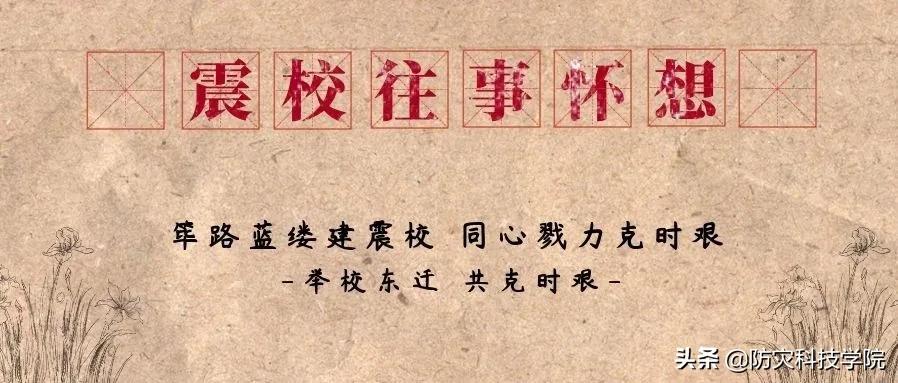 震校往事怀想
筚路蓝缕建震校 同心戮力克时艰
-举校东迁 共克时艰-
头条 @防灾科技学院